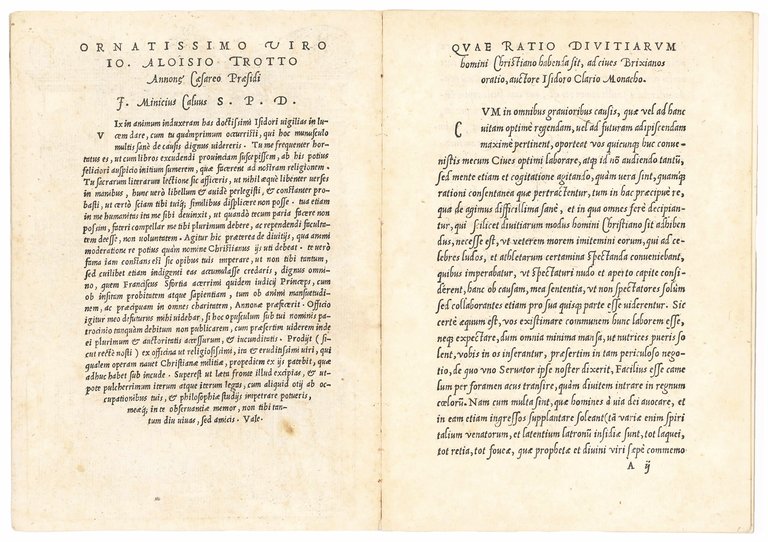 ORNATISSIMO VIRO
IO. ALOISIO TROTTO
Annonę Cæsareo Præsidi
F. Minicius Caluus S. P. D.
VIx in animum induxeram has doctissimi Isidori uigilias in lu-
cem dare, cum tu quàmprimum occurristi, qui hoc munusculo
multis sanè de causis dignus uidereris. Tu me frequenter hor-
tatus es, ut cum libros excudendi prouinciam suscepissem, ab his potius
feliciori auspicio initium sumerem, quæ facerent ad nostram religionem.
Tu sacrarum literarum lectione sic afficeris, ut nihil æquè libenter uerses
in manibus, hunc uerò libellum & auidè perlegisti, & constanter pro-
basti, ut certò sciam tibi tuiq; similibus displicere non posse. tua etiam
in me humanitas ita me sibi deuinxit, ut quando tecum paria facere non
possim, fateri compellar me tibi plurimum debere, ac rependendi faculta-
tem deesse, non uoluntatem. Agitur hic præterea de diuitijs, qua animi
moderatione re potius quàm nomine Christianus ijs uti debeat. te uerò
fama iam constans est sic opibus tuis imperare, ut non tibi tantum,
sed cuilibet etiam indigenti eas accumulasse credaris, dignus omni-
no, quem Franciscus Sfortia acerrimi quidem iudicij Princeps, cum
ob insitam probitatem atque sapientiam, tum ob animi mansuetudi-
nem, ac præcipuam in omnes charitatem, Annonæ præfecerit. Officio
igitur meo defuturus mihi uidebar, si hoc opusculum sub tui nominis pa-
trocinio tanquàm debitum non publicarem, cum præsertim uiderem inde
ei plurimum & auctoritatis accessurum, & iucunditatis. Prodijt (si-
cut rectè nosti) ex officina ut religiosissimi, ita & eruditissimi uiri, qui
qualem operam nauet Christianæ militiæ, propediem ex ijs patebit, quæ
adhuc habet sub incude. Superest ut læta fronte illud excipias, & ut-
pote pulcherrimum iterum atque iterum legas, cum aliquid otij ab oc-
cupationibus tuis, & philosophiæ studijs impetrare potueris,
meæq; in te obseruantiæ memor, non tibi tan-
tum diu uiuas, sed amicis. Vale.
QVAE RATIO DIVITIARVM
homini Christiano habenda sit, ad ciues Brixianos
oratio, auctore Isidoro Clario Monacho.
CVM in omnibus grauioribus causis, quæ uel ad hanc
uitam optimè regendam, uel ad futuram adipiscendam
maximè pertinent, oporteat uos quicunq; huc conue-
nistis mecum Ciues optimi laborare, atq; id nō audiendo tantū,
sed mente etiam et cogitatione agitando, quàm uera sint, quamq;
rationi consentanea quæ pertractentur, tum in hac præcipuè re,
qua de agimus difficillima sanè, et in qua omnes ferè decipian-
tur, qui scilicet diuitiarum modus homini Christiano sit adhiben
dus, necesse est, ut ueterem morem imitemini eorum, qui ad ce-
lebres ludos, et athletarum certamina spectanda conueniebant,
quibus imperabatur, ut spectaturi nudo et aperto capite consi-
derent, hanc ob causam, mea sententia, ut non spectatores solùm
sed collaborantes etiam pro sua quisq; parte esse uiderentur. Sic
certè æquum est, uos existimare communem hunc laborem esse,
neq; expectare, dum omnia minima mansa, ut nutrices pueris so
lent, uobis in os inserantur, præsertim in tam periculoso nego-
tio, de quo uno Seruator ipse noster dixerit, Facilius esse came
lum per foramen acus transire, quàm diuitem intrare in regnum
cœlorū. Nam cum multa sint, quæ homines à uia dei auocare, et
in eam etiam ingressos supplantare soleant (tā uariæ enim spiri
talium uenatorum, et latentium latronū insidiæ sunt, tot laquei,
tot retia, tot foueæ, quæ prophetæ et diuini uiri sæpè commemo
A ij